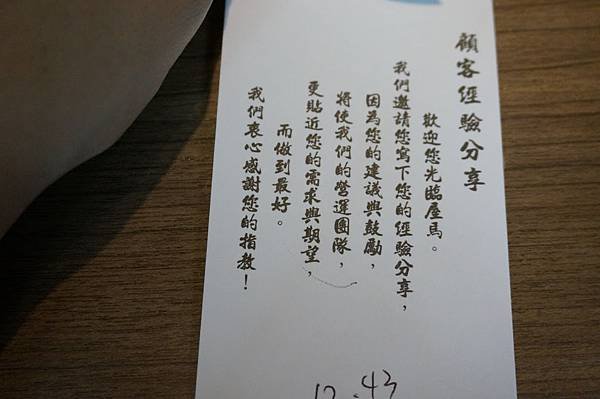 顧客經驗分享
歡迎您光臨屋馬。
我們邀請您寫下您的經驗分享，
因為您的建議與鼓勵，
將使我們的營運團隊，
更貼近您的需求與期望，
而做到最好。
我們衷心感謝您的指教！
12.43